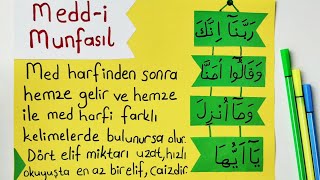 Medd-i
Munfasıl
Med harfinden sonra
hemze gelir ve hemze
ile med harfi farklı
kelimelerde bulunursa olur.
Dört elif miktarı uzat,hızlı
okuyuşta en az bir elif, caizdir.
رَبَّنَٓا اِنَّكَ
وَقَالُٓوا اٰمَنَّا
وَمَٓا اُنْزِلَ
يَٓا اَيُّهَا